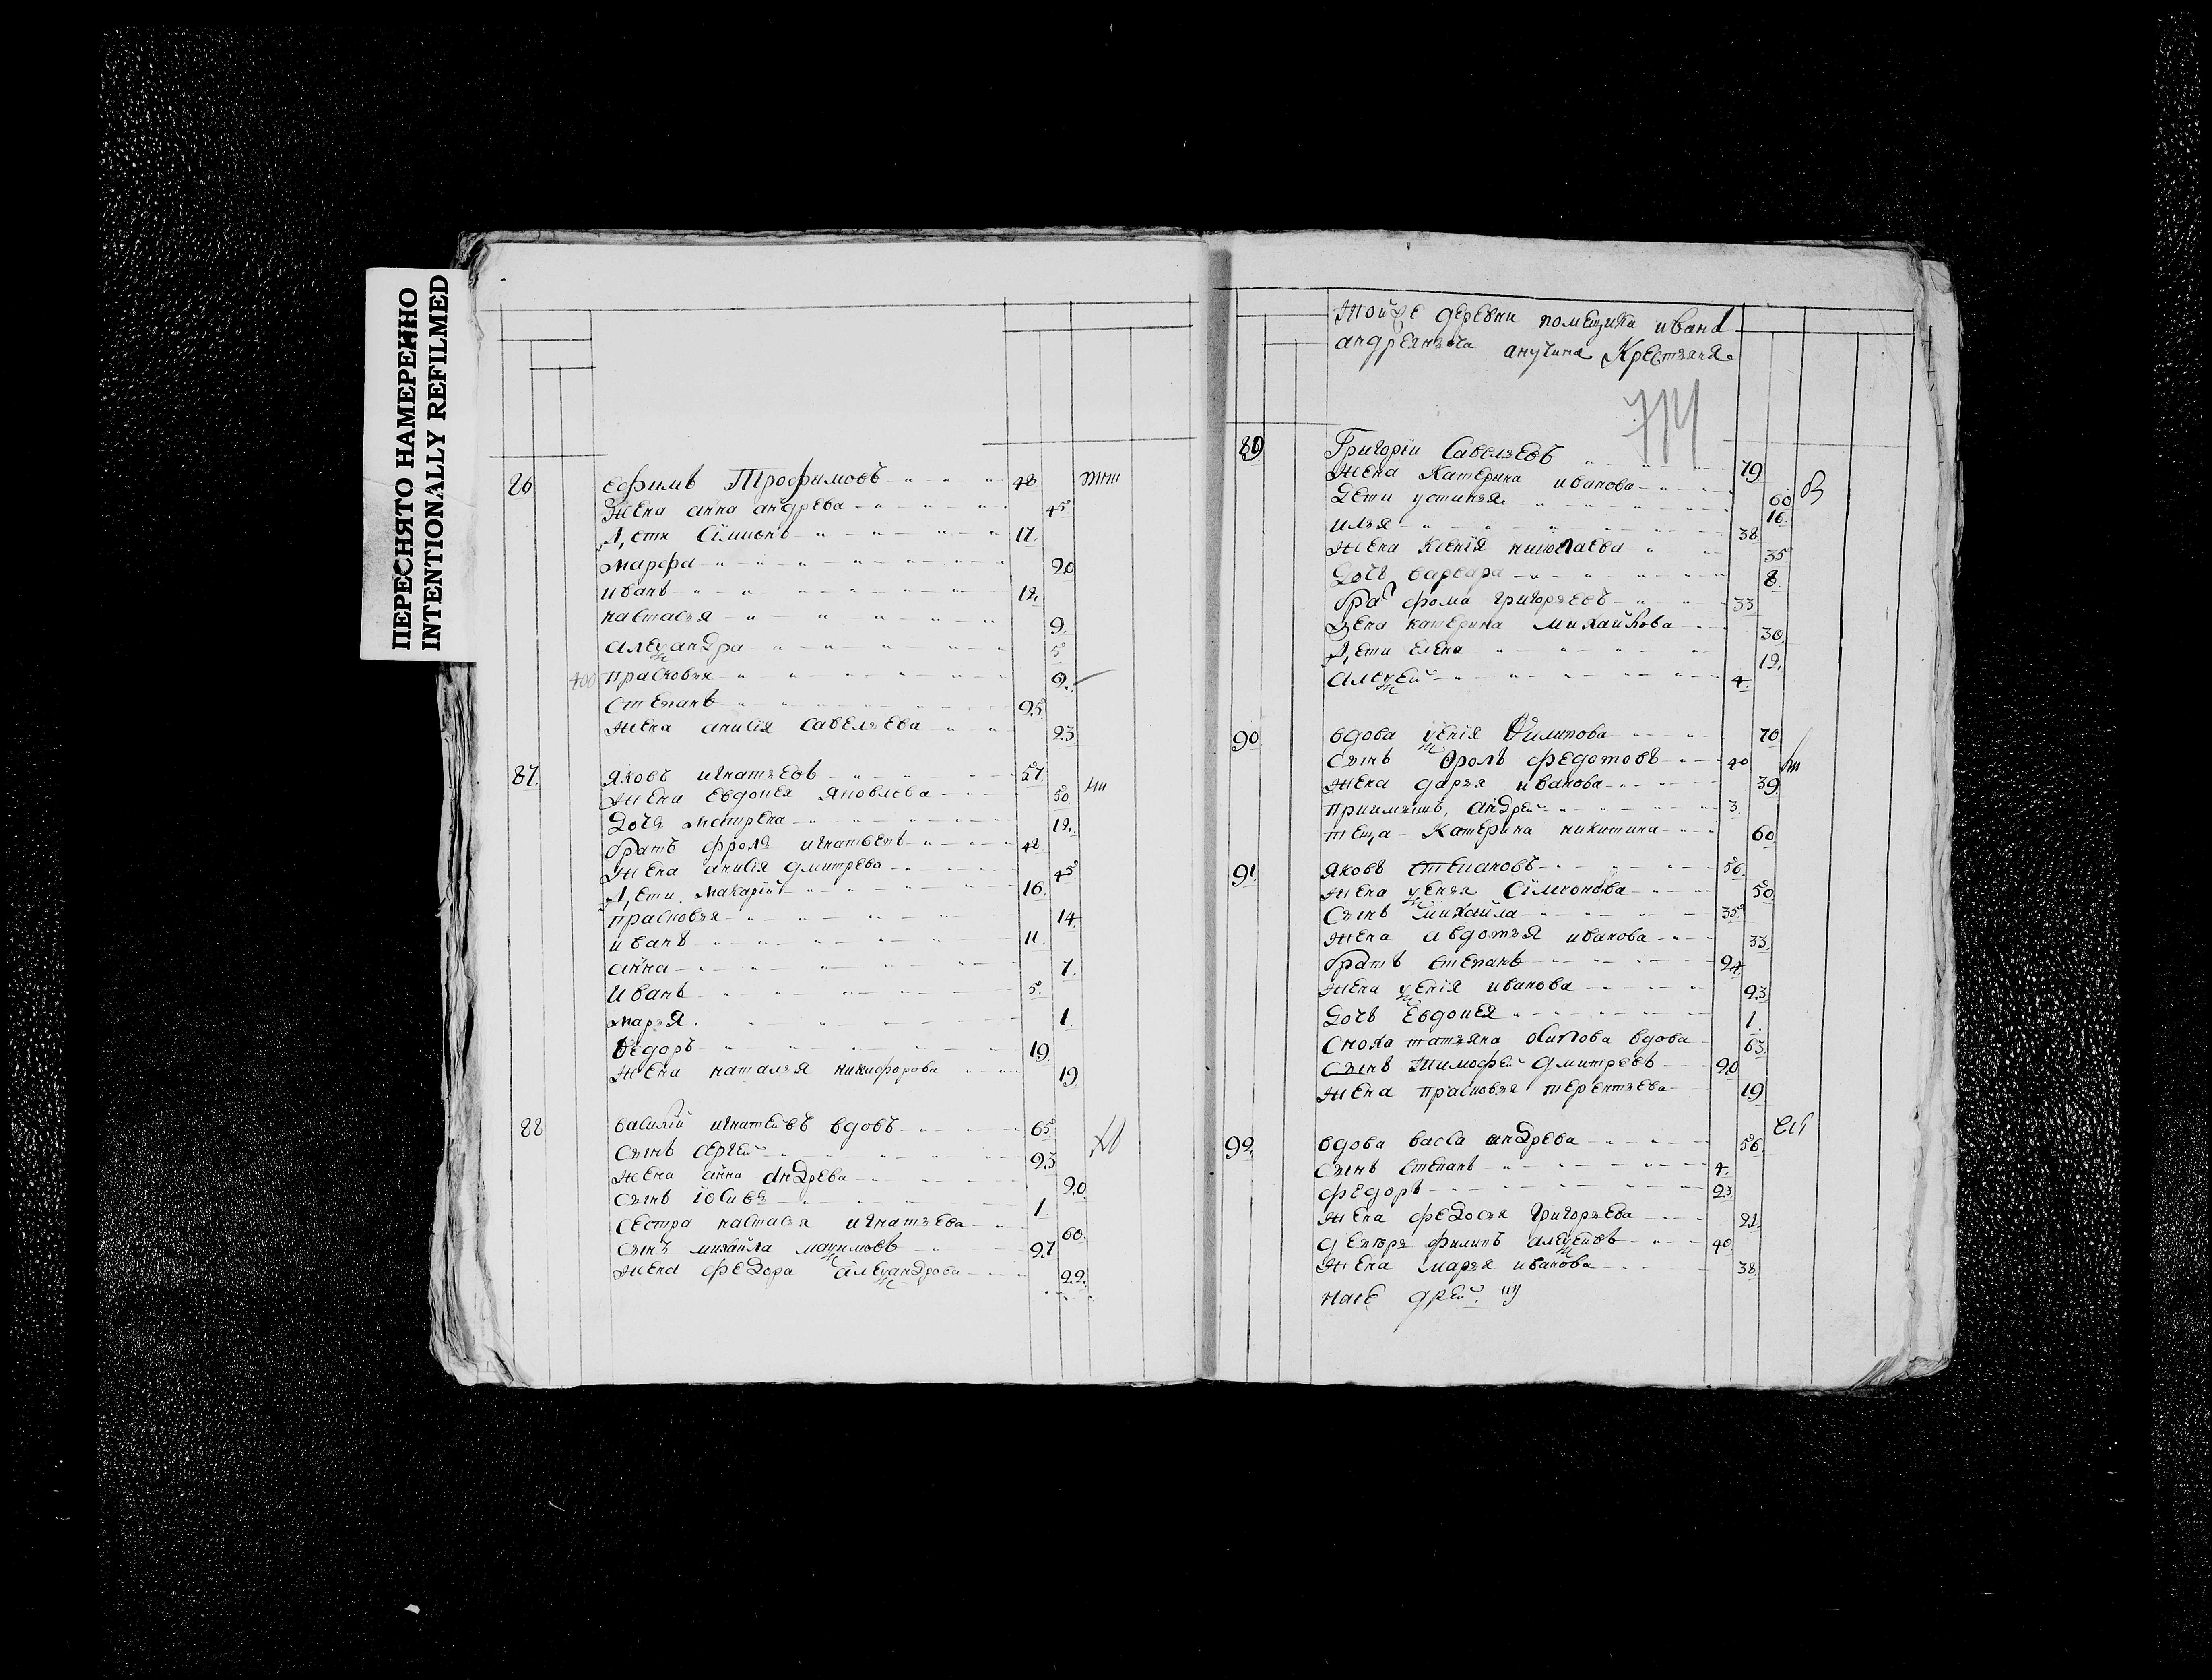 ПЕРЕСНЯТО НАМЕРЕННО
INTENTIONALLY REFILMED
86 ефимъ Трофимовъ 48
жена анна андрева 45
дети Симионъ 17.
марфа 20
иванъ 12.
настасья 9.
алеѯандра 5
прасковья 2.
степанъ 25
жена анисия савельева 23
87. яковъ игнатьевъ 57
жена евдокея яковлева 50
дочь матрена 12.
братъ фролъ игнатьевъ 42
жена анисия дмитрева 45
дети. макарий 16.
прасковья 14
иванъ 11.
анна 7.
иванъ 5.
марья. 1.
ѳедоръ 19
жена наталья никифорова 19
88 василий игнатьевъ вдовъ 65
сынъ сергей 23
жена анна андрева 20
сынъ иосивъ 1.
сестра настасья игнатьева 60.
сынъ михайла маѯимовъ 27
жена федора алеѯандрова 22.
тойже деревни помещика ивана
андреянова анучина Крестьяня.
89 Григории Савельевъ 79
жена Катерина иванова 60
Дети устинья. 16.
илья 38
жена ксения николаева 35
дочь варвара 8.
брат фома григорьевъ 33
жена катерина михайлова 30.
дети елена 12.
алеѯей 4.
90 вдова ѯения Ѳилипова 70
сынъ Ѳролъ федотовъ 40
жена дарья иванова 39
приимышъ, андрей 3.
теща Катерина никитина 60
91 яковъ степановъ 56
жена ѯенья Симионова 50
сынъ михайла 35
жена авдотья иванова 33.
братъ степанъ 24
жена ѯения иванова 23
дочь евдокея 1.
сноха татьяна осипова вдова 63.
сынъ Тимофей дмитреевъ 20
жена прасковья терентьева 19
92. вдова васса андрева 56.
сынъ степанъ 4.
федоръ 23
жена федосья григорьева 21.
деверь филипъ алеѯеевъ 40
жена марья иванова 38.